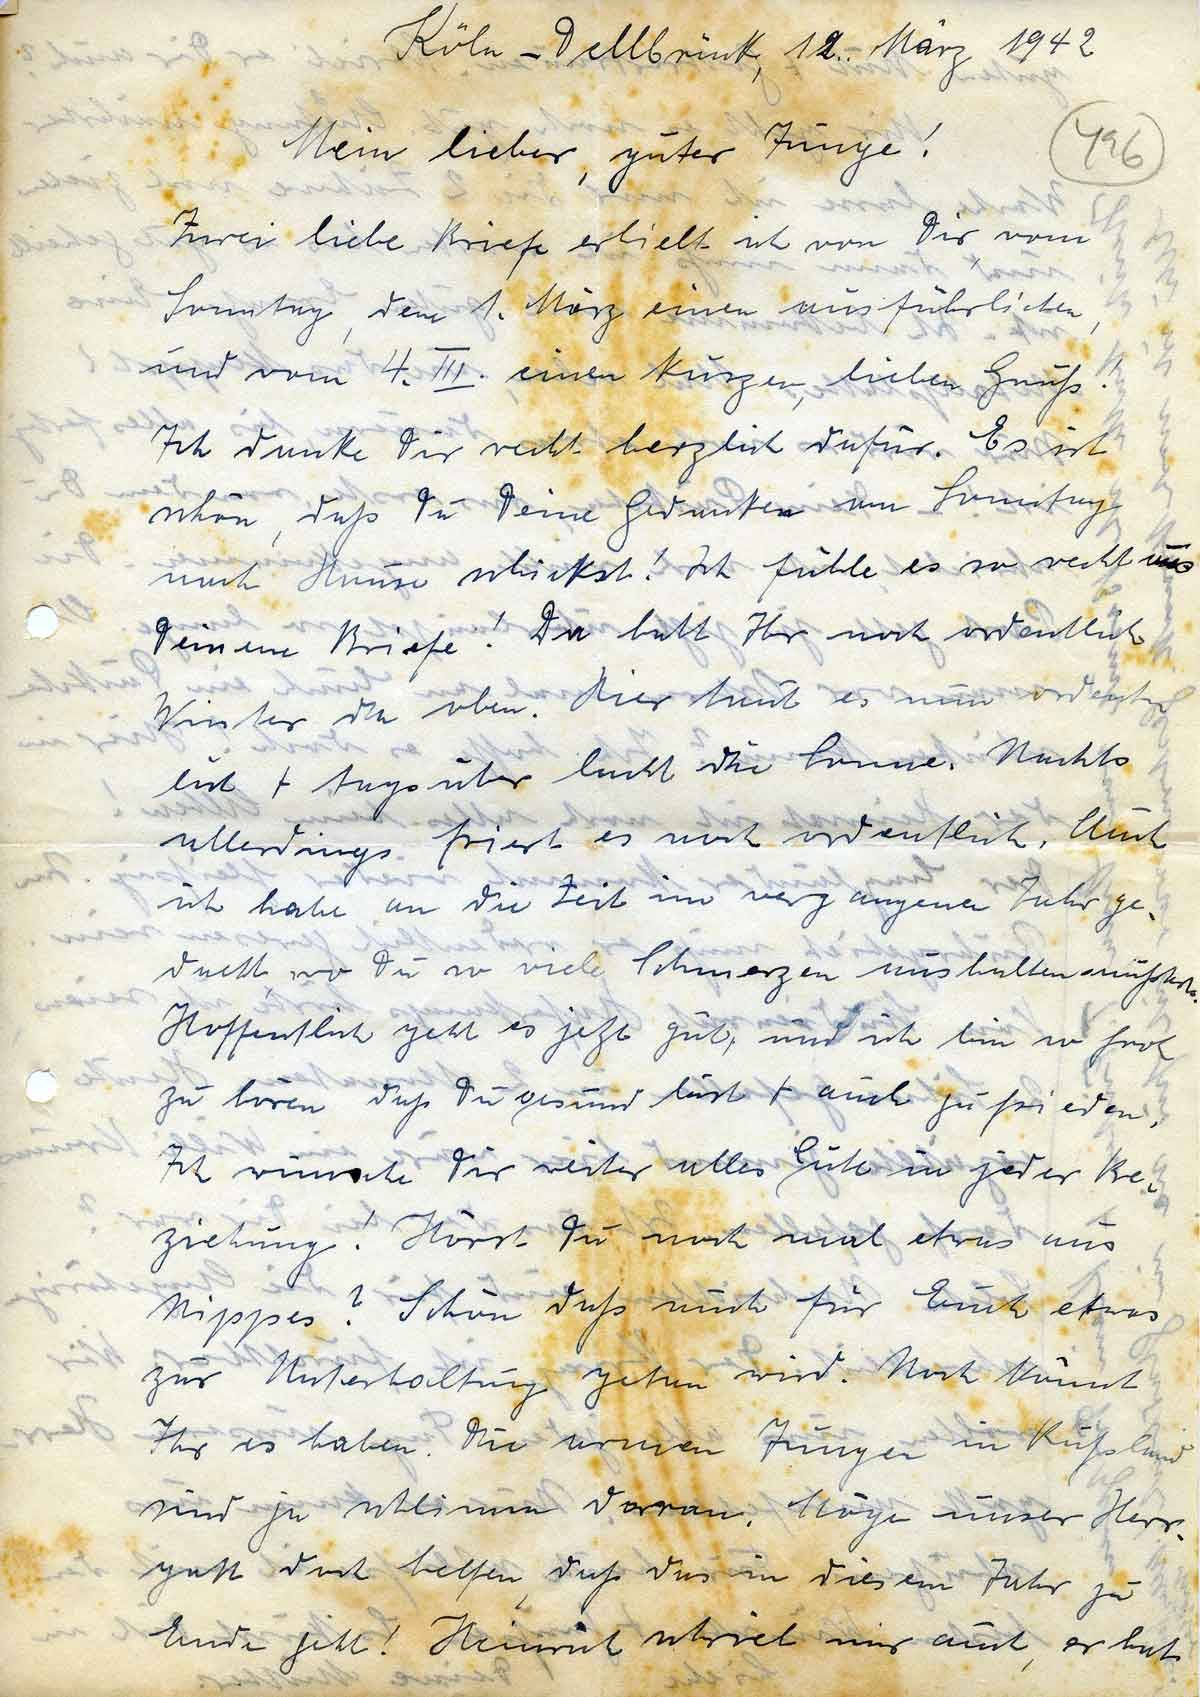 Köln-Dellbrück, 12. März 1942
496
Mein lieber, guter Junge!
Zwei liebe Briefe erhielt ich von Dir, vom
Sonntag, dem 1. März einen ausführlichen,
und vom 4. III. einen kurzen, lieben Gruß.
Ich danke Dir recht herzlich dafür. Es ist
schön, daß Du Deine Gedanken am Sonntag
nach Hause schickst! Ich fühle es so recht aus
Deinem Briefe! Da habt Ihr noch ordentlich
Winter da oben. Hier taut es nun ordent-
lich + tagsüber lacht die Sonne. Nachts
allerdings friert es noch ordentlich. Auch
ich habe an die Zeit im vergangenen Jahr ge-
dacht, wo Du so viele Schmerzen aushalten mußtest.
Hoffentlich geht es jetzt gut, und ich bin so froh
zu hören daß Du gesund bist + auch zufrieden.
Ich wünsche Dir weiter alles Gute in jeder Be-
ziehung! Hörst Du noch mal etwas aus
Nippes? Schön daß auch für Euch etwas
zur Unterhaltung getan wird. Noch könnt
Ihr es haben. Die armen Jungen in Rußland
sind ja schlimm daran. Möge unser Herr-
gott doch helfen, daß das in diesem Jahr zu
Ende geht! Heinrich schrieb mir auch, er hat